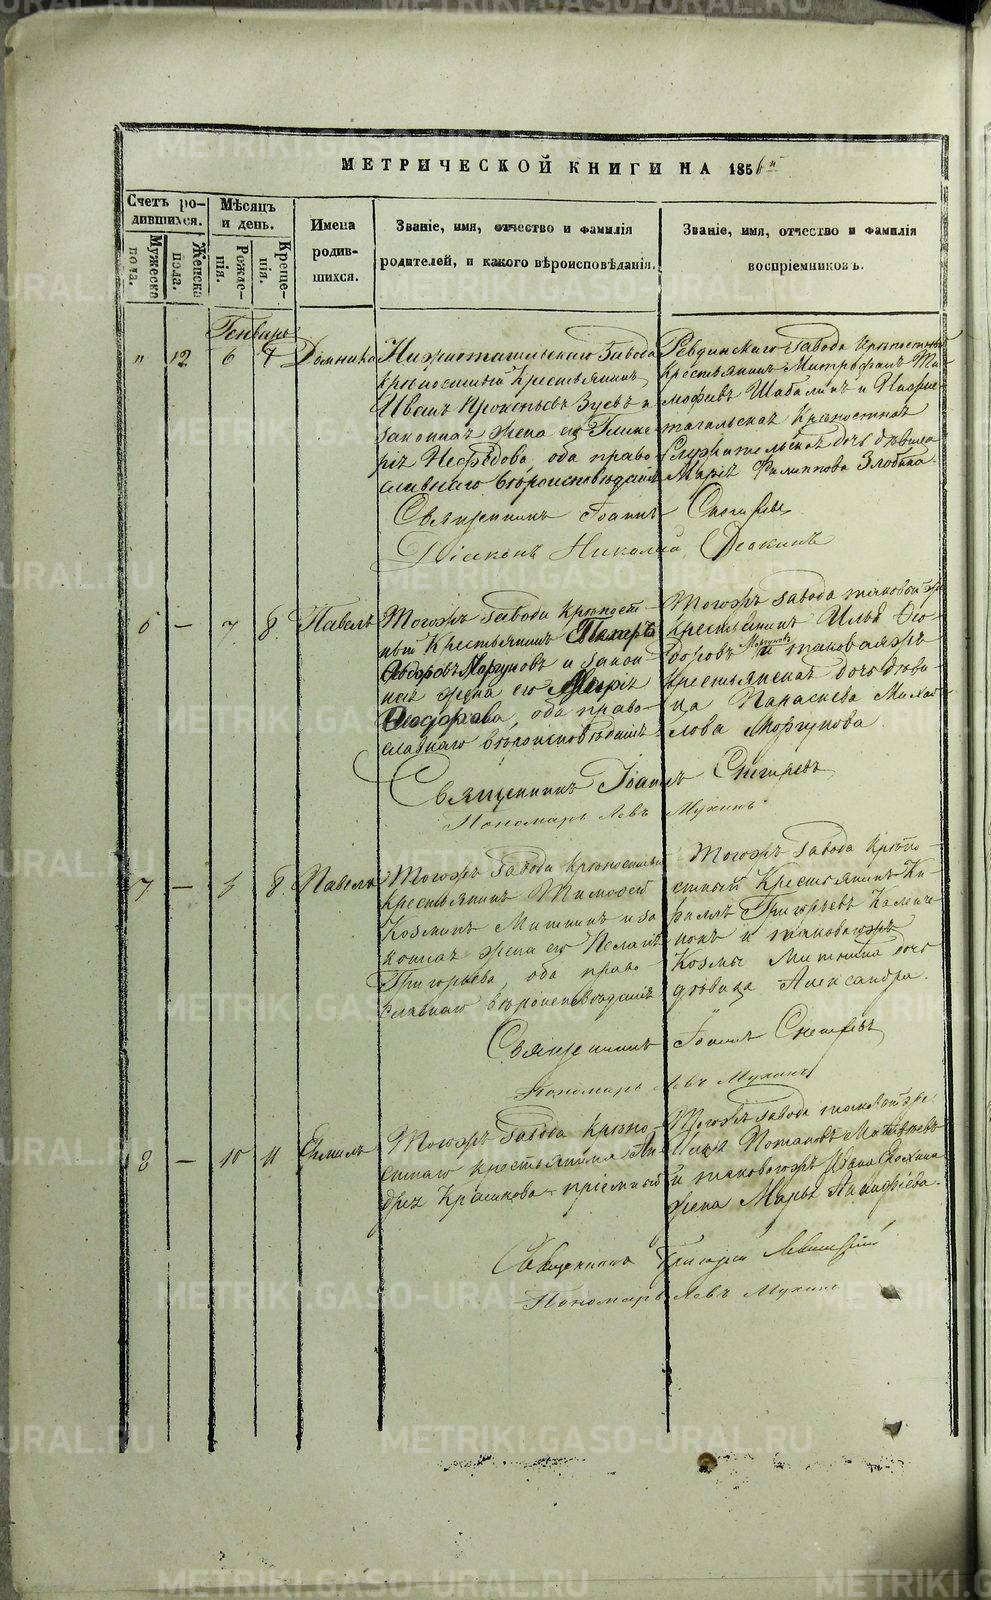 МЕТРИЧЕСКОЙ КНИГИ НА 1856 й
Счетъ ро-
дившихся.
Мужеска
пола.
Женска
пола.
Мѣсяцъ
и день.
Рожде-
нія.
Креще-
нія.
Имена
родив-
шихся.
Званіе, имя, отчество и фамилія
родителей, и какого вѣроисповѣданія.
Званіе, имя, отчество и фамилія
воспріемниковъ.
Генварь
" 12 6 7 Домника
Нижнотагильскаго завода
крѣпостный Крестьянинъ
Иванъ Прокопьевъ Зуевъ и
законная жена его Глике
рія Нефедова, оба право
славнаго вѣроисповѣданія
Ревдинскаго завода крѣпостный
крестьянинъ Митрофанъ Ти
мофѣевъ Шабалинъ и Нижне
тагильская Крѣпостная
Служительская дочь дѣвица
Марія Филиппова Злобина.
Священникъ Іоаннъ Снегиревъ
Діаконъ Николай
6 — 7 8 Павелъ
Тогожъ завода крѣпост
ный Крестьянинъ Петръ
Ѳедоровъ Моргуновъ и закон
ная жена его Марія
оба право
славнаго вѣроисповѣданія
Тогожъ завода таковой же
крестьянинъ Илья Ѳео
доровъ Моргуновъ и таковаяжъ
крестьянская дочь дѣви
ца Параскева Михай
лова Моргунова.
Священникъ Іоаннъ Снигиревъ
Пономарь Левъ Мухинъ
7 — 5 8 Павелъ
Тогожъ завода крѣпостный
крестьянинъ Тимофей
Козминъ Митинъ и за
конная жена его Пелагія
Григорьева, оба право
славнаго вѣроисповѣданія
Тогожъ завода крѣпо
стный Крестьянинъ Ки
риллъ Григорьевъ
и таковагожъ
Козмы Митина дочь
дѣвица Александра.
Священникъ Іоаннъ Снегиревъ
Пономарь Левъ Мухинъ
8 — 10 11 Емилъ
Тогожъ завода крѣпо
стнаго крестьянина Ан
дрея Крашкова пріемный
Тогожъ завода таковой же
Потаповъ Матвѣевъ
и таковагожъ Ивана
жена Марья
Священникъ Григорій Левитскій
Пономарь Левъ Мухинъ
METRIKI.GASO-URAL.RU